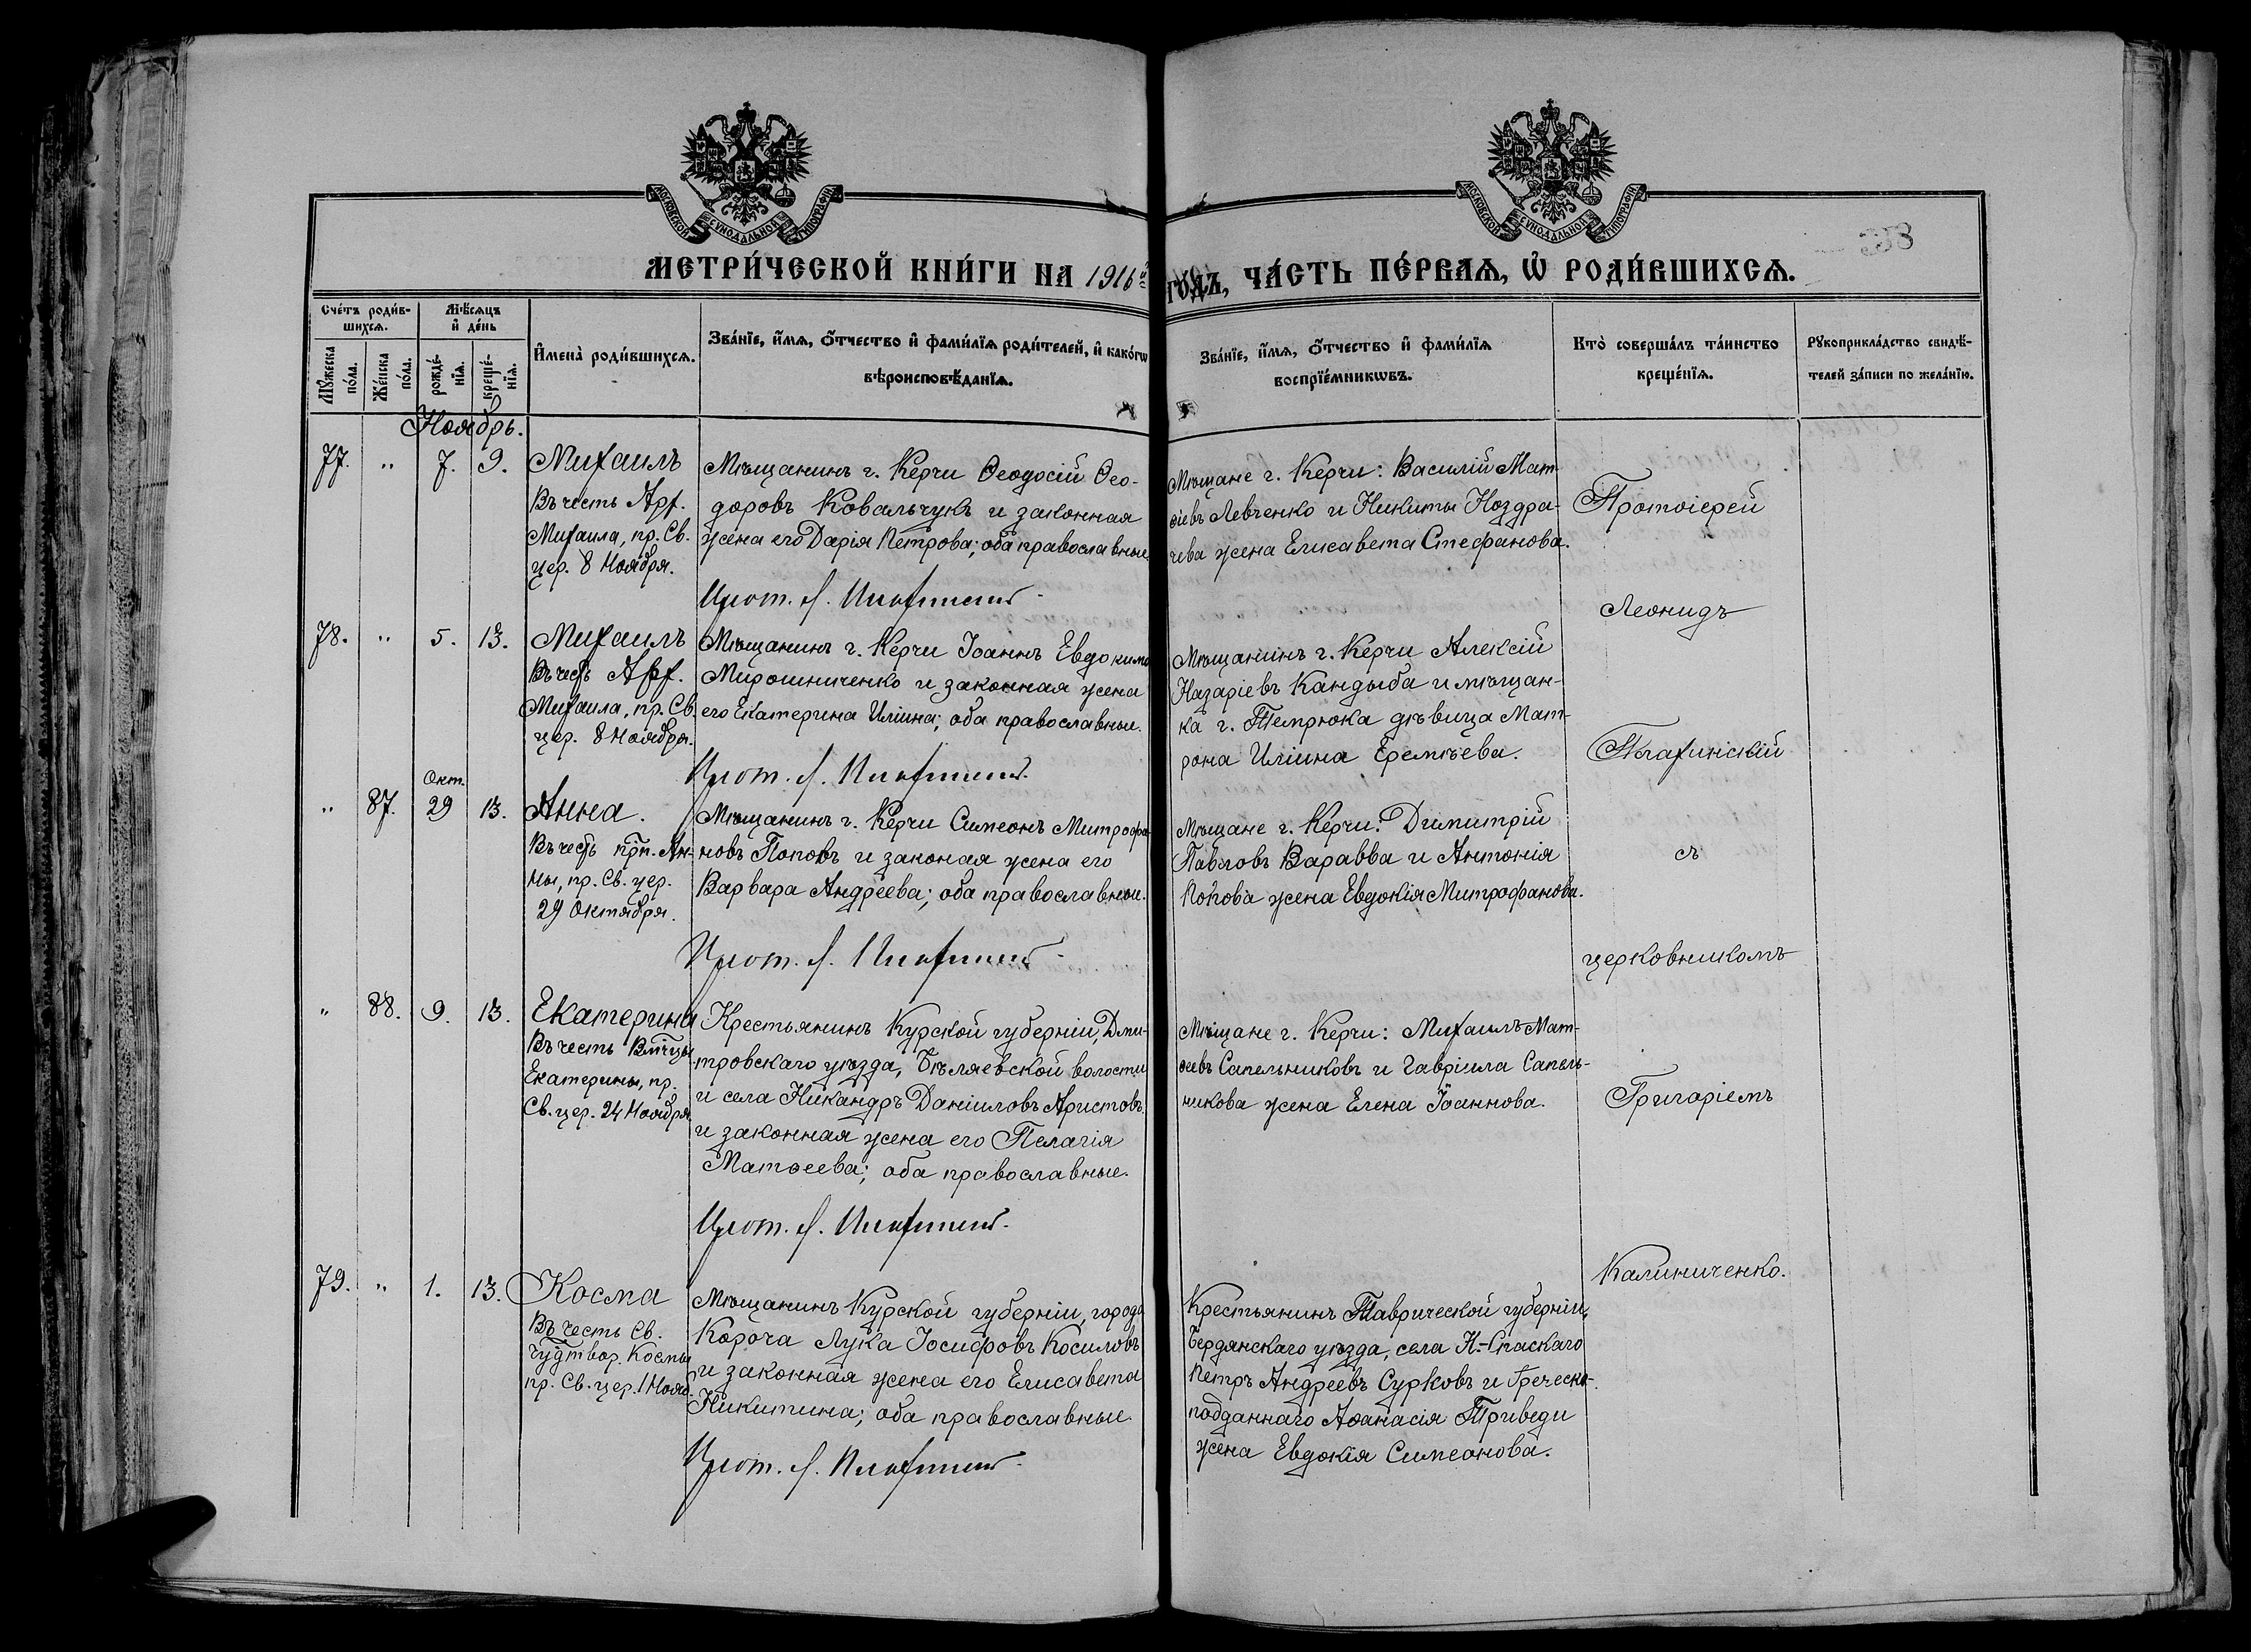 МОСКОВСКОЙ СѴНОДАЛЬНОЙ ТИПОГРАФІИ
МОСКОВСКОЙ СѴНОДАЛЬНОЙ ТИПОГРАФІИ
МЕТРИ́ЧЕСКОЙ КНИ́ГИ НА 1916 ГО́ДЪ, ЧА́СТЬ ПЕ́РВАѦ, Ѡ҆ РОДИ́ВШИХСѦ.
Сче́тъ роди́в-
шихсѧ.
Мѣ́сѧцъ
и҆ де́нь
Мꙋ́жеска
по́ла.
Же́нска
по́ла.
рожде́-
нїѧ.
креще́-
нїѧ.
И҆мена̀ роди́вшихсѧ.
Зва́нїе, и҆́мѧ, ѻ҆́тчество и҆ фами́лїѧ роди́телей, и҆ како́гѡ
вѣроисповѣ́данїѧ.
Зва́нїе, и҆́мѧ, ѻ҆́тчество и҆ фами́лїѧ
воспрїе́мникѡвъ.
Кто̀ соверша́лъ та́инство
креще́нїѧ.
Рꙋкоприкла́дство свидѣ́-
телей за́писи по жела́нїю.
Ноябрь.
77. " 7. 9. Михаилъ
Въ честь Арх.
Михаила, пр. Св.
цер. 8 Ноября.
Мѣщанинъ г. Керчи Ѳеодосій Ѳео-
доровъ Ковальчукъ и законная
жена его Дарія Петрова; оба православные
Прот. Л.
Мѣщане г. Керчи: Василій Мат-
ѳіевъ Левченко и Никиты Ноздра-
чева жена Елисавета Стефанова.
Протоіерей
Леонидъ
78. " 5. 13. Михаилъ
Въ честь Арх.
Михаила, пр. Св.
цер. 8 Ноября.
Мѣщанинъ г. Керчи Іоаннъ Евдокимо
Мирошниченко и законная жена
его Екатерина Иліина; оба православные.
Прот. Л.
Мѣщанинъ г. Керчи Алексій
Назаріевъ Кандыба и мѣщан-
ка г. Темрюка дѣвица Мат-
рона Иліина Еремѣева.
" 87. Окт. 29 13. Анна.
Въ честь прп. Ан-
ны, пр. Св. цер.
29 Октября.
Мѣщанинъ г. Керчи Симеонъ Митрофа-
новъ Поповъ и законая жена его
Варвара Андреева; оба православные.
Прот. Л.
Мѣщане г. Керчи: Димитрій
Павловъ Варавва и Антонія
Попова жена Евдокія Митрофанова.
съ
церковникомъ
" 88. 9. 13. Екатерина
Въ честь Вмчцы
Екатерины, пр.
Св. цер. 24 Ноября
Крестьянинъ Курской губерніи, Дми-
тровскаго уѣзда, Бѣляевской волости
и села Никандръ Даніиловъ Аристовъ
и законная жена его Пелагія
Матѳеева; оба православные.
Прот. Л.
Мѣщане г. Керчи: Михаилъ Мат-
ѳеевъ Сапельниковъ и Гавріила Сапель-
никова жена Елена Іоаннова.
Григоріемъ
Калиниченко.
79. " 1. 13. Косма
Въ честь Св.
Чудтвор. Космы
пр. Св. цер. 1 Нояб.
Мѣщанинъ Курской губерніи, города
Короча Лука Іосифовъ Косиловъ
и законная жена его Елисавета
Никитина; оба православные
Прот. Л.
Крестьянинъ Таврической губерніи,
Бердянскаго уѣзда, села Н.-Спаскаго
Петръ Андреевъ Сурковъ и Греческо-
подданнаго Аѳанасія Триведи
жена Евдокія Симеонова.